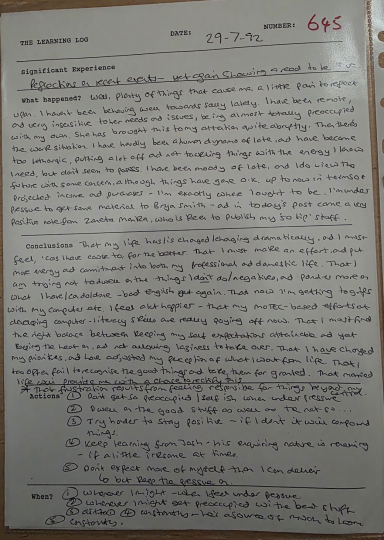 THE LEARNING LOG
DATE: 29-7-92
NUMBER: 645
Significant Experience
Reflections on recent events - yet again showing a need to be
What happened? Well, plenty of things that cause me a little pain to reflect
upon. I haven't been behaving well towards Sally lately. I have been remote,
and very insensitive to her needs and issues, being almost totally preoccupied
with my own. She has brought this to my attention quite abruptly. Then there's
the work situation. I have hardly been a human dynamo of late, and have become
too lethargic, putting a lot off and not tackling things with the energy I know
I need, but don't seem to possess. I have been moody of late, and I do view the
future with some concern, although things have gone o.k. up to now in terms of
projected income and purchases - I'm exactly where I ought to be. I'm under
pressure to get some material to Bryn Smith - and in today's post came a very
positive note from who is keen to publish my 'so tip' stuff.
Conclusions That my life has/is changed/changing dramatically, and I must
feel, 'cos I have cause to, for the better. That I must make an effort and put
more energy and commitment into both my professional and domestic life. That I
am trying not to dwell on the things I don't do/negatives, and ponder more on
what I have/can do/are - bad English yet again. That now I'm getting to grips
with my computer at last, I feel a lot happier - that my MOTEC-based efforts at
changing computer-literacy fears are really paying off now. That I must find
the right balance between keeping my self expectations obtainable and yet
keeping the heat on, and not allowing laziness to take over. That I have changed
my priorities, and have adjusted my perception of what I want from life. That I
too often fail to recognise the good things and take them for granted. That married
life can provide me with a chance to rectify this.
* That frustration results from feeling responsible for things beyond my control
Actions ① Don't get so preoccupied/selfish when under pressure.
② Dwell on the good stuff as well as the not so...
③ Try harder to stay positive - if I don't it will compound
things.
④ Keep learning from Josh - his enquiring nature is renewing
- if a little irksome at times.
⑤ Don't expect more of myself than I can deliver
but keep the pressure on.
When? ① Whenever I might - when I feel under pressure.
② Whenever I might get preoccupied with the bad stuff.
③ ditto ④ Constantly - he's a source of much to learn
⑤ Constantly.